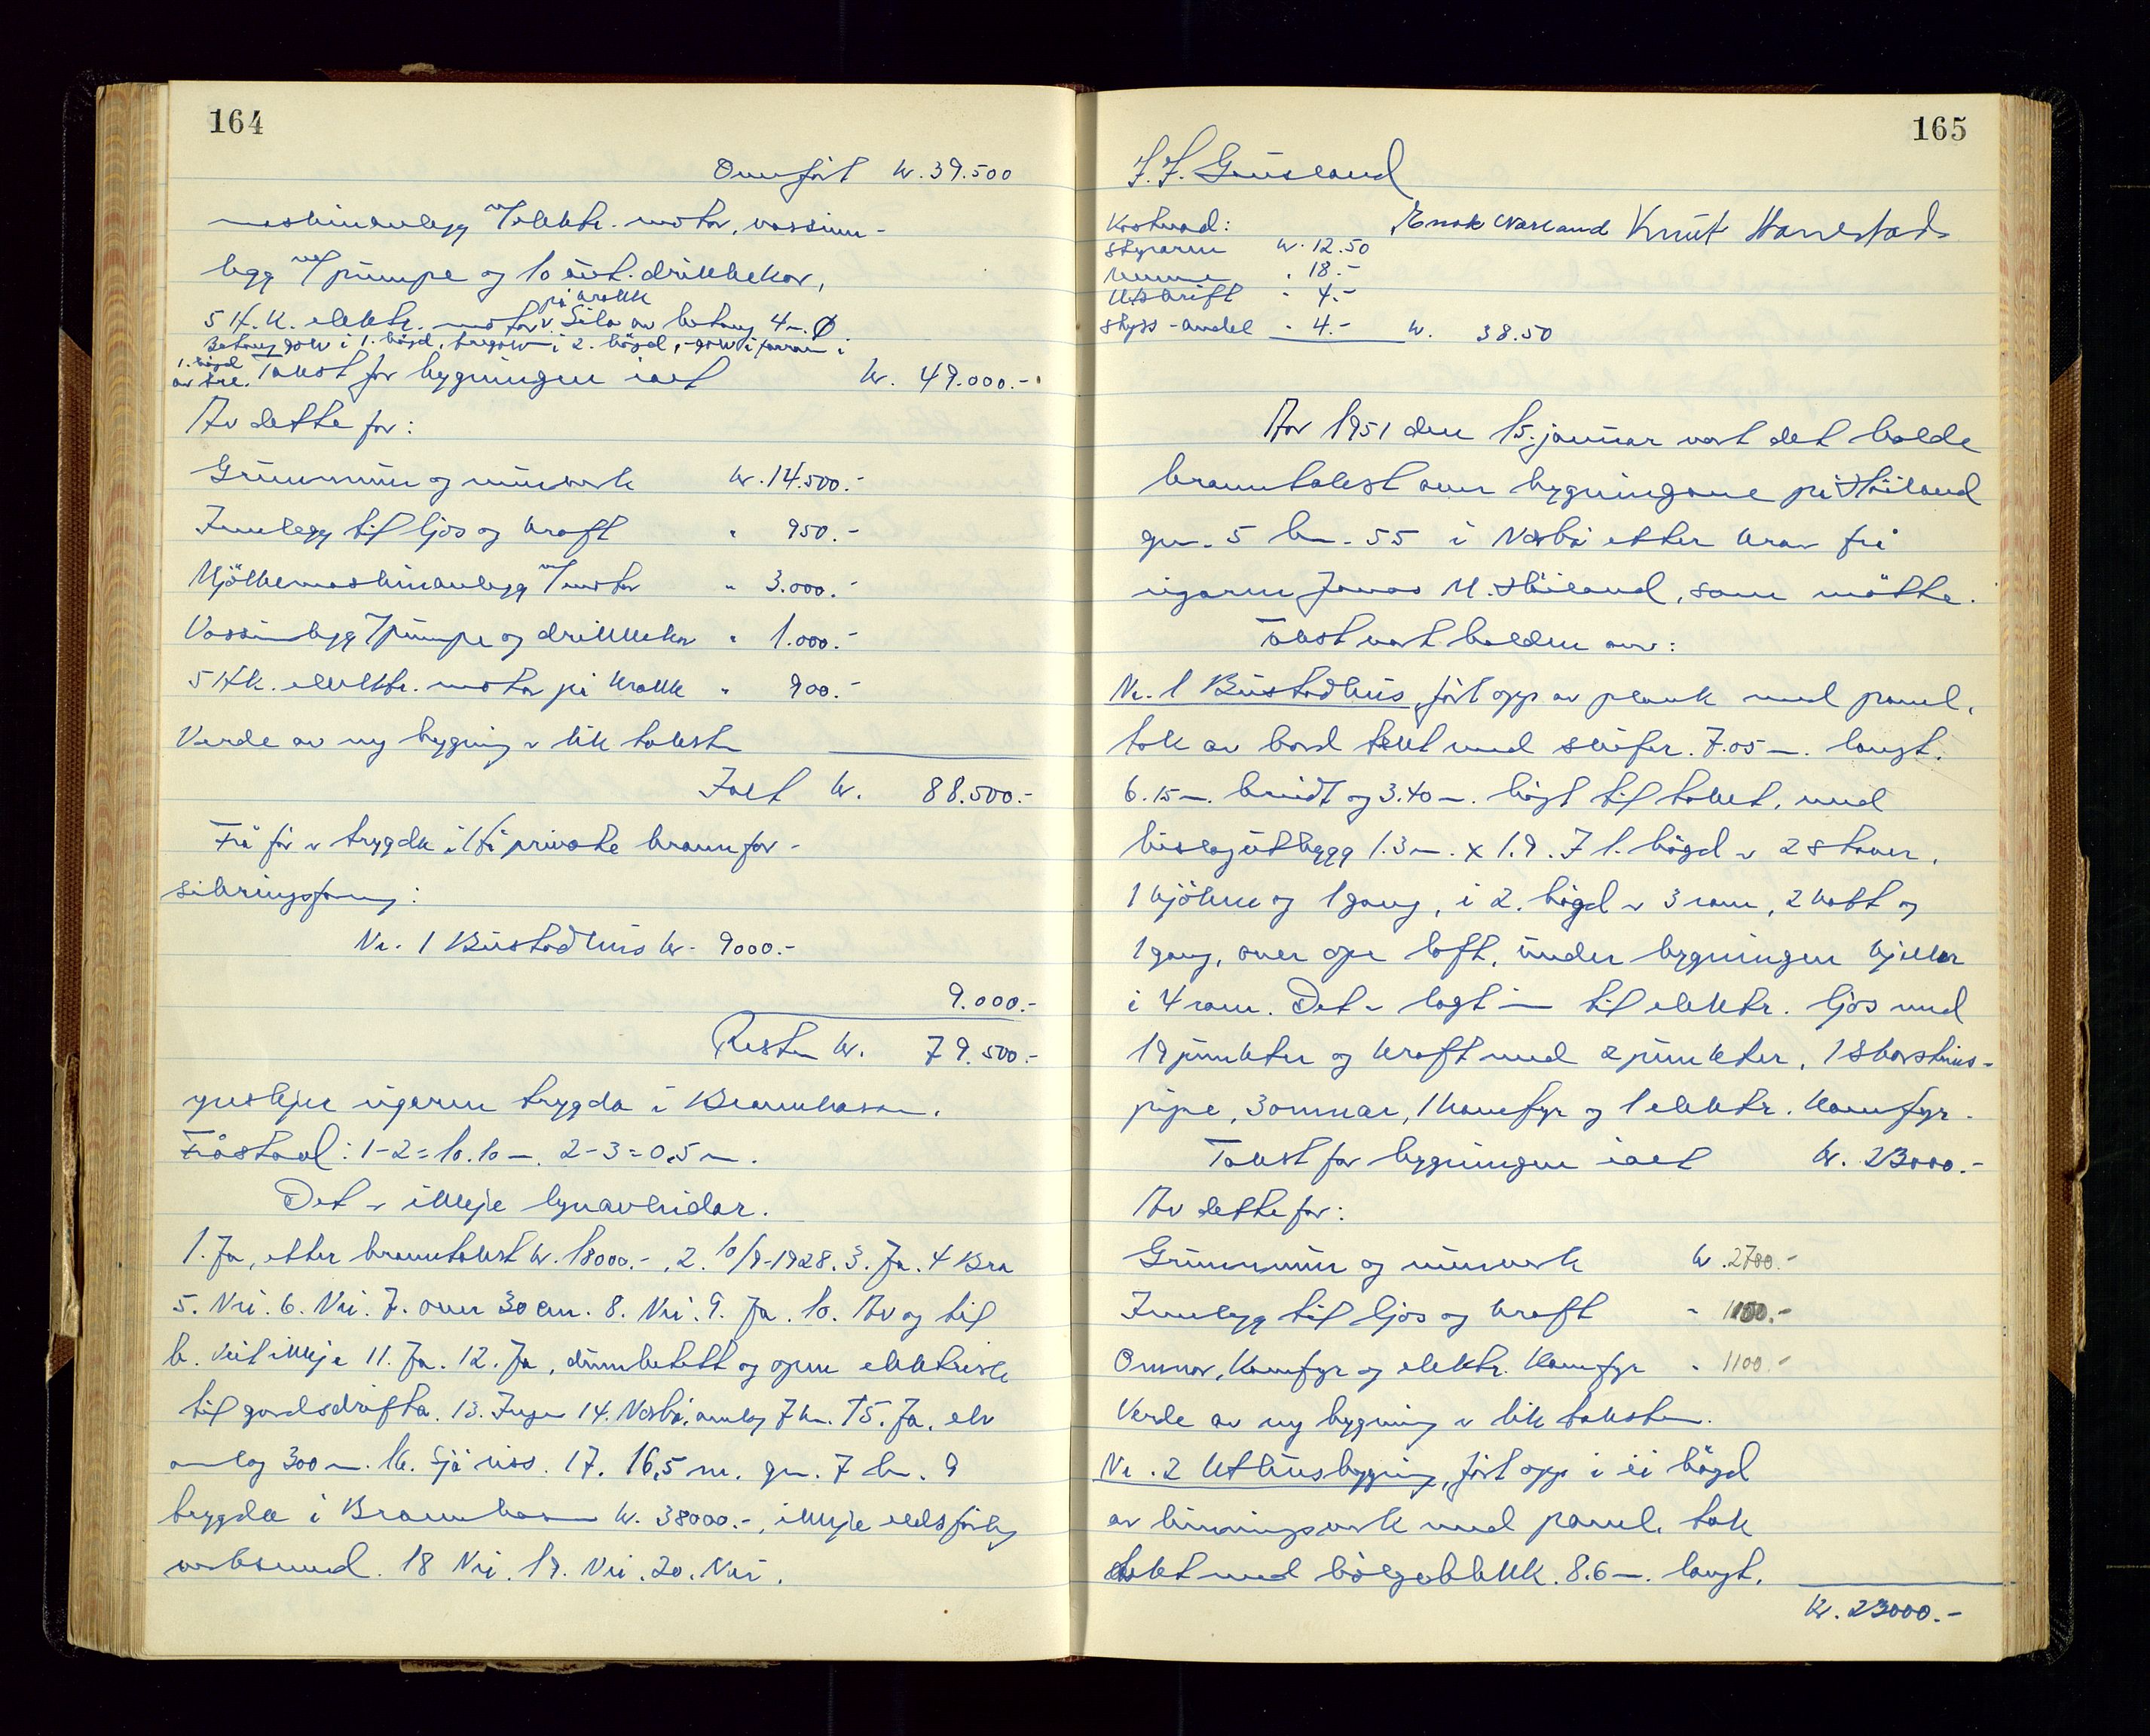 164
Overført kr. 39.500
maskinanlegg m/elektr. motor, vassinn-
legg m/pumpe og 10 aut. drikkekar,
på krakk
5 H.K. elektr. motor v. Silo av betong 4 m. Ø
Betonggolv i 1. högd, tregolv i 2. högd, golv i forrom i
1. högd
av tre. Takst for bygningen ialt kr. 49.000.-
Av dette for:
Grunnmur og murverk kr. 14.500.-
Innlegg til ljos og kraft " 950.-
Mjölkemaskinanlegg m/motor " 3.000.-
Vassinnlegg m/pumpe og drikkekar " 1.000.-
5 Hk. elektr. motor på krakk " 900.-
Verde av ny bygning er lik taksten
Ialt kr. 88.500.-
Frå för er trygda i/frå private brannfor-
sikringsforening:
Nr. 1 Bustadhus kr. 9000.-
9.000.-
Resten kr. 79.500.-
ynskjer eigaren trygda i Brannkassen.
Fråstand: 1-2 = 10.10 m. 2-3 = 0,5 m.
Det er ikkje lynavleidar.
1. Ja, etter branntakst kr. 18000.-, 2. 10/9-1928. 3. Ja. 4 Bra
5. Nei. 6. Nei. 7. over 30 cm. 8. Nei. 9. Ja. 10. Av og til
b. Veit ikkje 11. Ja. 12. Ja, elektrisk
til gardsdrifta. 13. Ingen 14. Nærbø, omlag 7 km. 15. Ja, elv
omlag 300 m. 16. Sjå riss. 17. 16,5 m. gn. 7 bn. 9
trygda i Brannkassen kr. 38000.-, ikkje eldsfårleg
verksemd. 18 Nei. 19. Nei. 20. Nei.
165
Kostnad:
Enok Varland Knut Hanestad
Styraren kr. 12.50
" 18.-
Utskrift " 4.-
Skyss-andel " 4.- kr. 38.50
År 1951 den 15. januar vart det halde
branntakst over bygningane på Höiland
gn. 5 bn. 55 i Nærbø etter krav frå
eigaren Jonas M. Höiland, som mötte.
Takst vart halden over:
Nr. 1 Bustadhus, fört opp av plank med panel,
tak av bord tekt med skifer. 7.05 m. langt.
6.15 m. breidt og 3.40 m. högt til taket, med
bislagutbygg 1.3 m. x 1.9. I 1. högd er 2 stover,
1 kjöken og 1 gang, i 2. högd er 3 rom, 2 kott og
1 gang, over ope loft, under bygningen kjellar
i 4 rom. Det er lagt inn til elektr. ljos med
19 punkter og kraft med 2 punkter, 1 skorsteins-
pipe, 3 omnar, 1 komfyr og 1 elektr. komfyr.
Takst for bygningen ialt kr. 23000.-
Av dette for:
Grunnmur og murverk kr. 2700.-
Innlegg til ljos og kraft " 1100.-
Omnar, komfyr og elektr. komfyr " 1100.-
Verde av ny bygning er lik taksten.
Nr. 2 Uthusbygning, fört opp i ei högd
av bindingsverk med panel, tak
tekt med bölgeblekk. 8.6 m. langt,
Kr. 23000.-